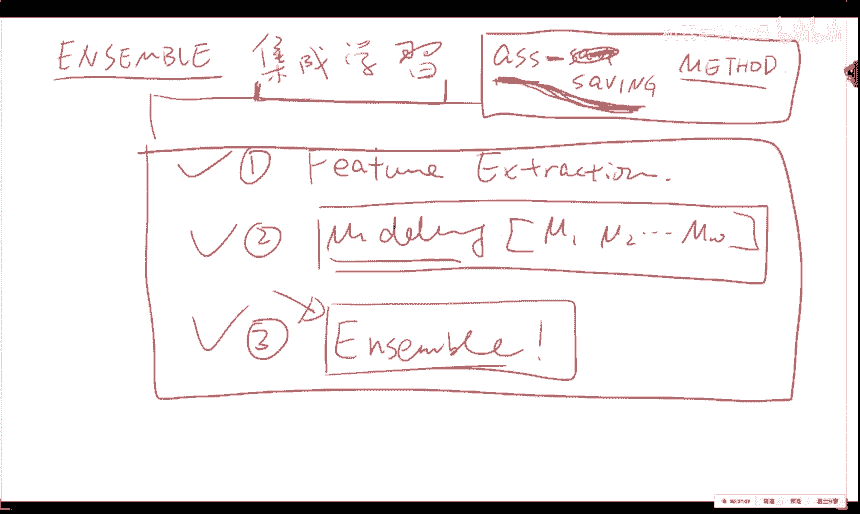 ENSEMBLE 集成学習
ass-saving METHOD
① Feature Extraction.
② Modeling [M₁ M₂ ... M₁₀]
③ Ensemble!